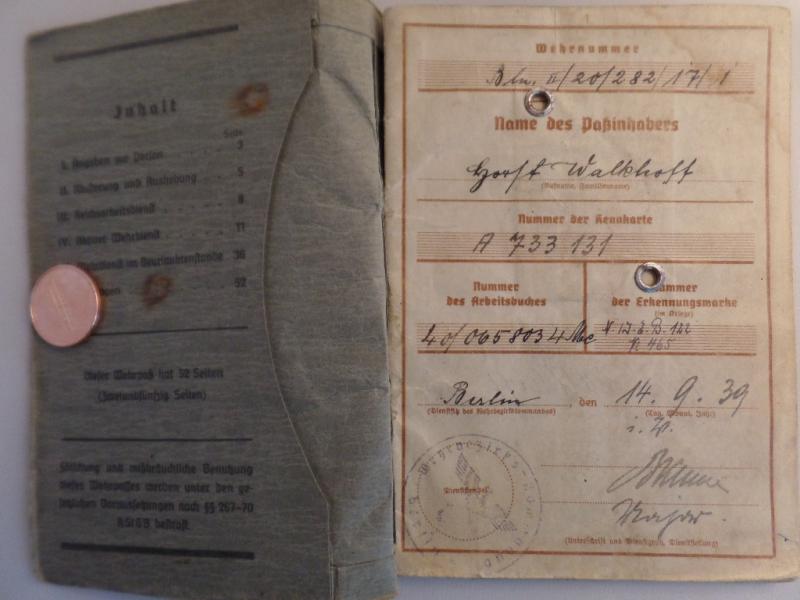 Inhalt
Seite
I. Angaben zur Person . . . 3
II. Musterung und Aushebung . . 5
III. Reichsarbeitsdienst . . . . 8
IV. Aktiver Wehrdienst . . . 11
Wehrdienst im Beurlaubtenstande 36
52
Dieser Wehrpaß hat 52 Seiten
(Zweiundfünfzig Seiten)
Fälschung und mißbräuchliche Benutzung
dieses Wehrpasses werden unter den ge-
setzlichen Voraussetzungen nach §§ 267-70
RStGB bestraft.
Wehrnummer
Bln. II/20/282/17/1
Name des Paßinhabers
Horst Walkhoff
(Rufname, Familienname)
Nummer der Kennkarte
A 733 131
Nummer
des Arbeitsbuches
40/065 8034
Nummer
der Erkennungsmarke
(im Kriege)
122
465
Berlin, den 14. 9. 39
(Dienstsitz des Wehrbezirkskommandos) (Tag, Monat, Jahr)
Dienststempel
Major
(Unterschrift und Dienstgrad, Dienststellung)